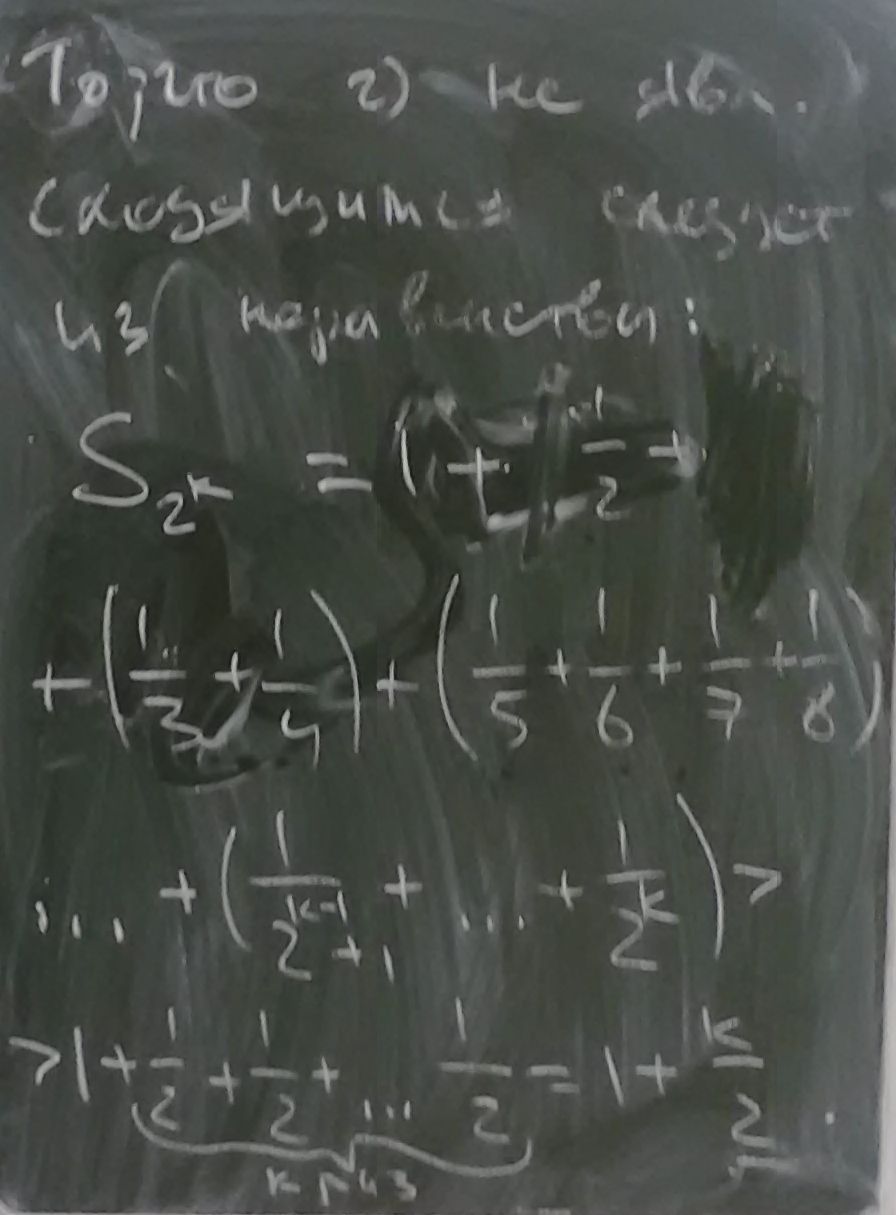 То, что 2) не явл.
сходящимся следует
из неравенства:
S_{2^k} = 1 + 1/2 +
+ (1/3 + 1/4) + (1/5 + 1/6 + 1/7 + 1/8)
... + (1/(2^{k-1}+1) + ... + 1/2^k) >
> 1 + 1/2 + 1/2 + ... 1/2 = 1 + k/2.
k раз